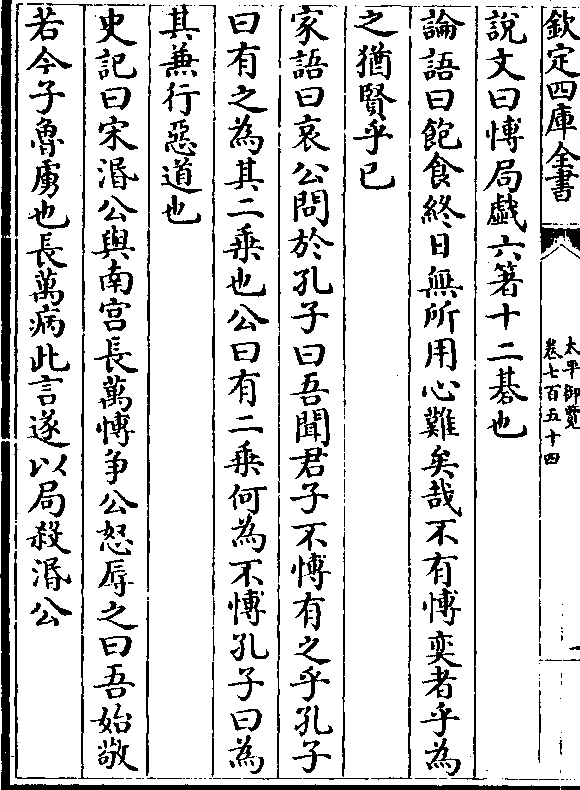 欽定四庫全書
太平御覧
卷七百五十四
說文曰愽局戯六箸十二棊也
論語曰飽食終日無所用心難矣哉不有愽奕者乎為
之猶賢乎已
家語曰哀公問於孔子曰吾聞君子不愽有之乎孔子
曰有之為其二乗也公曰有二乗何為不愽孔子曰為
其兼行惡道也
史記曰宋湣公與南宫長萬愽争公怒辱之曰吾始敬
若今子魯虜也長萬病此言遂以局殺湣公